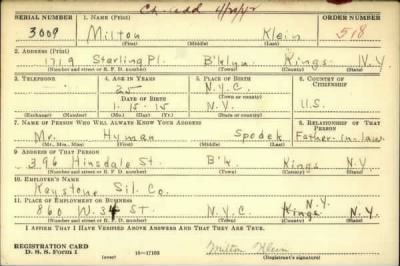 Ch. add 4/20/42
SERIAL NUMBER 1. NAME (Print) ORDER NUMBER
3009 Milton Klein 518
(First) (Middle) (Last)
2. ADDRESS (Print)
1719 Sterling Pl. B'klyn Kings N.Y.
(Number and street or R. F. D. number) (Town) (County) (State)
3. TELEPHONE 4. AGE IN YEARS 5. PLACE OF BIRTH 6. COUNTRY OF CITIZENSHIP
25 N.Y.C.
DATE OF BIRTH (Town or county)
1-15-15 N.Y. U.S.
(Exchange) (Number) (Mo.) (Day) (Yr.) (State or country)
7. NAME OF PERSON WHO WILL ALWAYS KNOW YOUR ADDRESS 8. RELATIONSHIP OF THAT PERSON
Mr. Hyman Spodek Father-in-law
(Mr., Mrs., Miss) (First) (Middle) (Last)
9. ADDRESS OF THAT PERSON
396 Hinsdale St. B'k. Kings N.Y.
(Number and street or R. F. D. number) (Town) (County) (State)
10. EMPLOYER'S NAME
Keystone Sil. Co.
11. PLACE OF EMPLOYMENT OR BUSINESS
860 W. 34 ST. N.Y.C. Kings N.Y. N.Y.
(Number and street or R. F. D. number) (Town) (County) (State)
I AFFIRM THAT I HAVE VERIFIED ABOVE ANSWERS AND THAT THEY ARE TRUE.
REGISTRATION CARD
D. S. S. Form 1 (over) 16—17105 Milton Klein
(Registrant's signature)